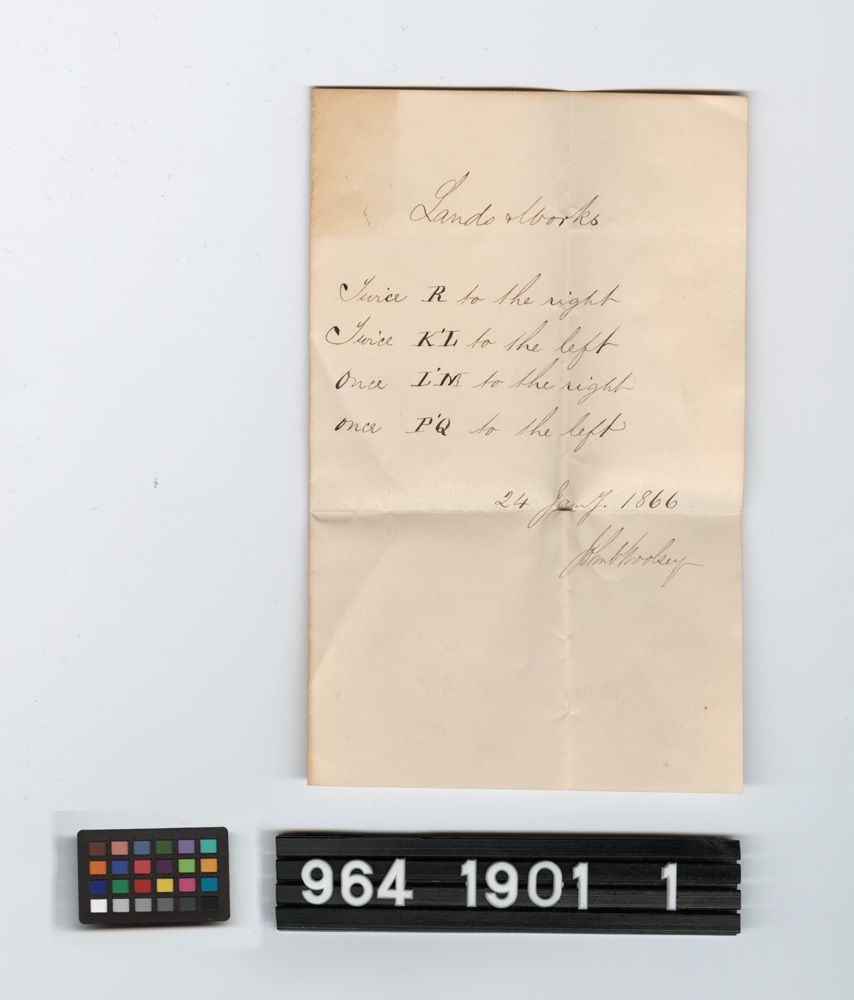 Lands & Works
Twice R to the right
Twice K'L to the left
once L'M to the right
once P'Q to the left
24 Jany. 1866
Woolsey
964 1901 1